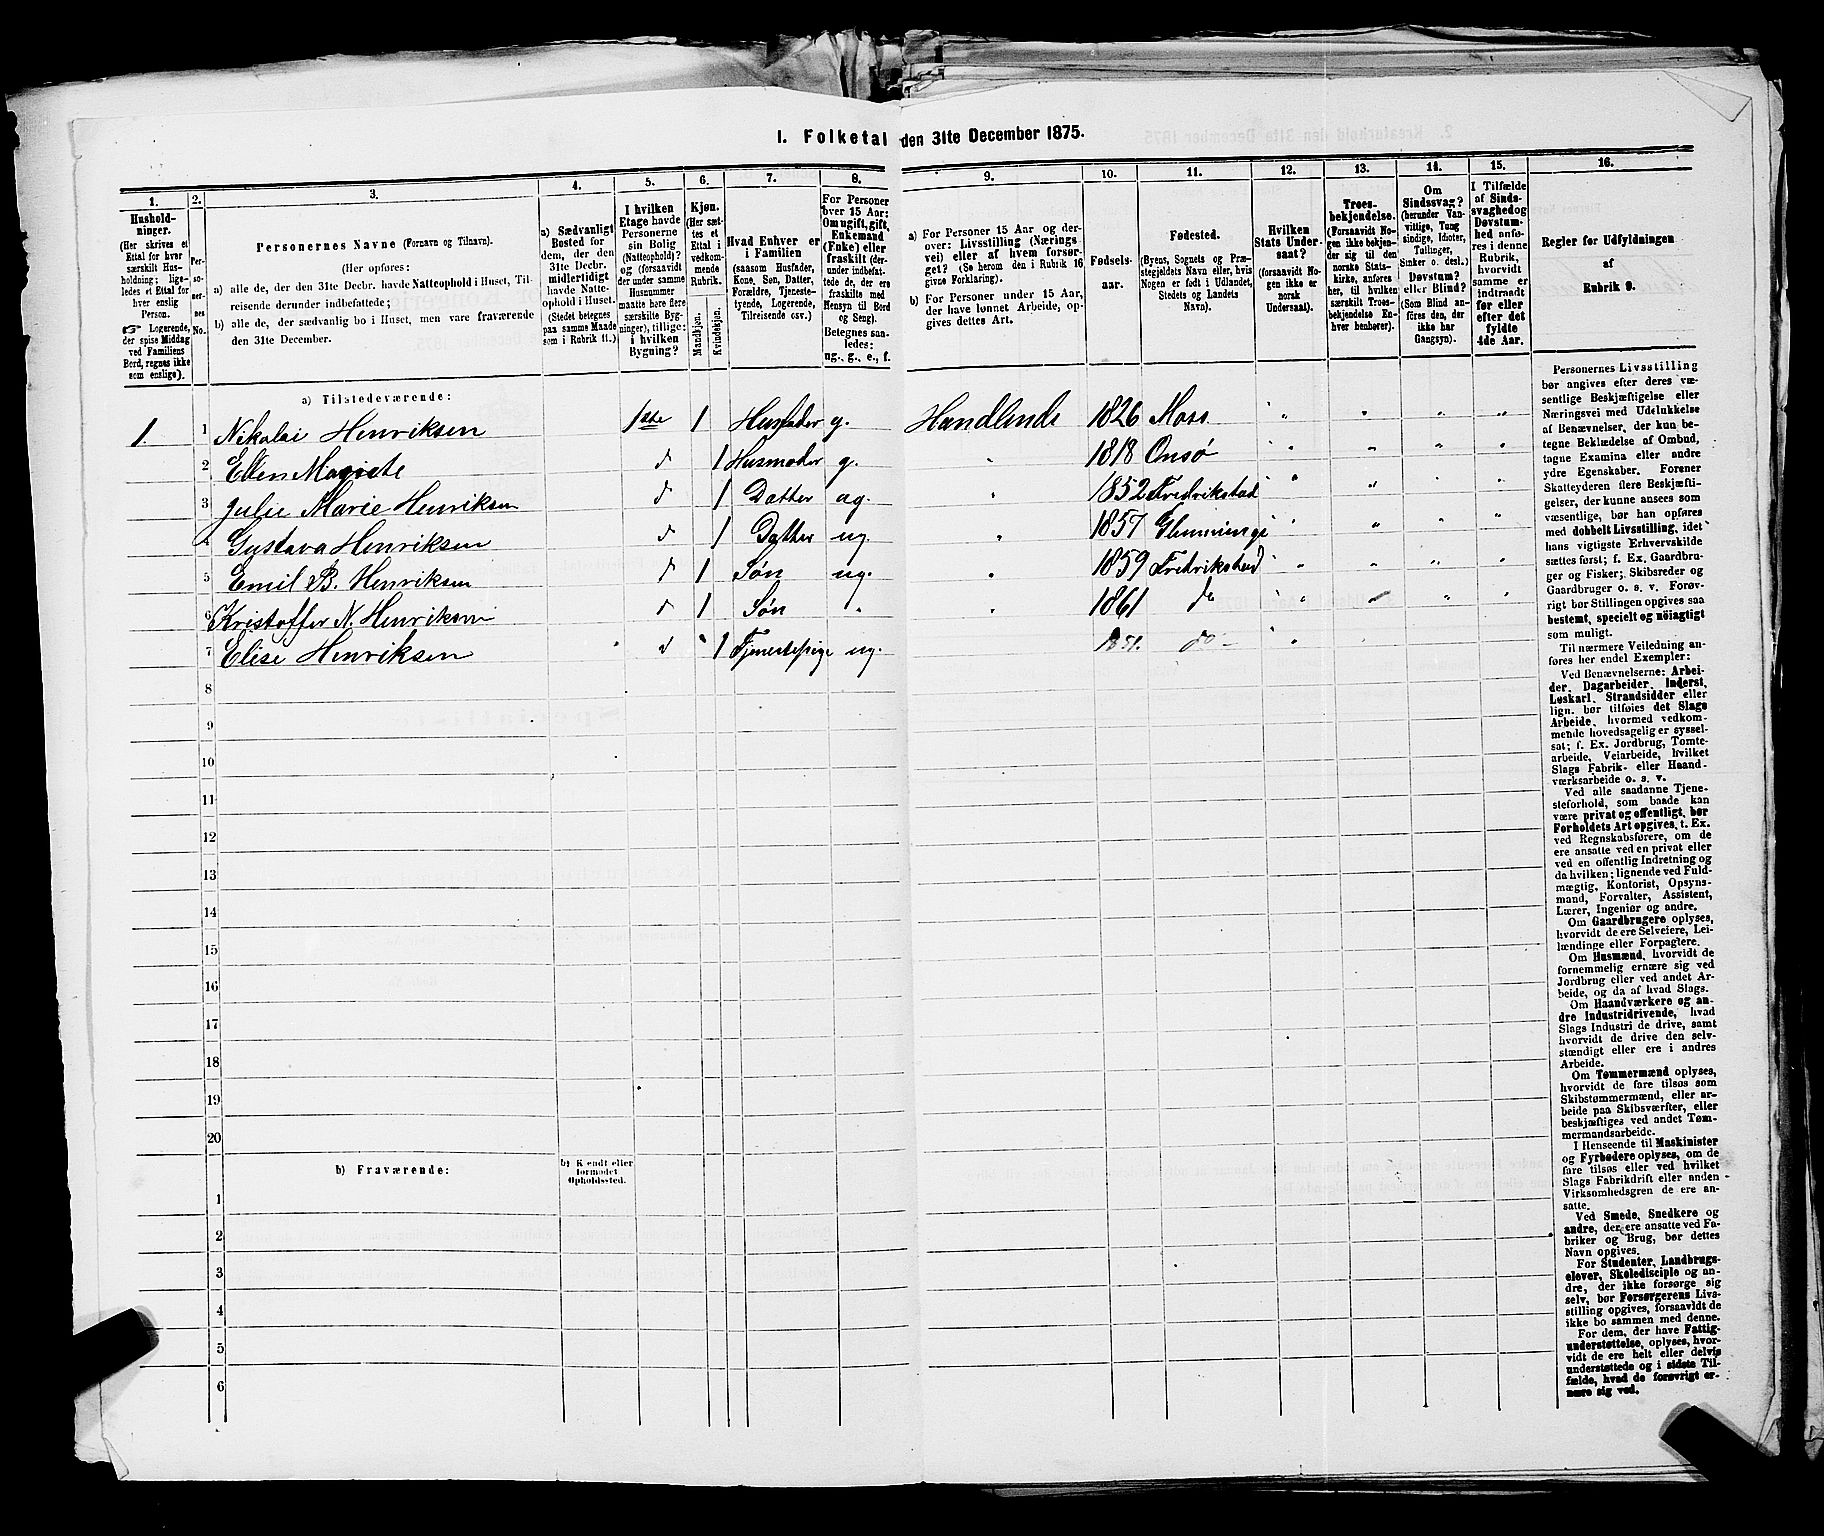 1. Folketal den 31te December 1875.
1. 2. 3. 4. 5. 6. 7. 8. 9. 10. 11. 12. 13. 14. 15. 16.
Hushold-
ninger.
(Her skrives et
Ettal for hver
særskilt Hus-
holdning; lige-
ledes et Ettal for
hver enslig
Person.
☞ Logerende,
der spise Middag
ved Familiens
Bord, regnes ikke
som enslige).
Per-
so-
ner-
nes
No.
Personernes Navne (Fornavn og Tilnavn).
(Her opføres:
a) alle de, der den 31te Decbr. havde Natteophold i Huset, Til-
reisende derunder indbefattede;
b) alle de, der sædvanlig bo i Huset, men vare fraværende
den 31te December.
a) Sædvanligt
Bosted for
dem, der den
31te Decbr.
midlertidigt
havde Natte-
ophold i Huset.
(Stedet betegnes
paa samme Maade
som i Rubrik 11.)
I hvilken
Etage havde
Personerne
sin Bolig
(Natteophold)?
og (forsaavidt
der under samme
Husnummer
maatte høre flere
særskilte Byg-
ninger), tillige:
i hvilken
Bygning?
Kjøn.
(Her sæt-
tes et
Ettal i
vedkom-
mende
Rubrik.
Mandkjøn.
Kvindekjøn.
Hvad Enhver er
i Familien
(saasom Husfader,
Kone, Søn, Datter,
Forældre, Tjeneste-
tyende, Logerende,
Tilreisende osv.)
For Personer
over 15 Aar:
Om ugift, gift,
Enkemand
(Enke) eller
fraskilt (der-
under indbefat-
tede de, der ere
fraskilte med
Hensyn til Bord
og Seng).
Betegnes saa-
ledes:
ug., g., e., f.
a) For Personer 15 Aar og der-
over: Livsstilling (Nærings
vei) eller af hvem forsør-
get? (Se herom den i Rubrik 16
givne Forklaring).
b) For Personer under 15 Aar,
der have lønnet Arbeide, op-
gives dettes Art.
Fødsels-
aar.
Fødested.
(Byens, Sognets og Præ-
stegjeldets Navn eller, hvis
Nogen er født i Udlandet,
Stedets og Landets
Navn).
Hvilken
Stats Under-
saat?
(forsaavidt No-
gen ikke er
norsk
Undersaat).
Troes-
bekjendelse.
(Forsaavidt No-
gen ikke bekjen-
der sig til den
norske Stats-
kirke, anføres
her, til hvilken
særskilt Troes-
bekjendelse En-
hver henhører).
Om
Sindssvag?
(herunder Van-
vittige, Tung
sindige, Idioter,
Tullinger,
Sinker o. desl.)
Døvstum?
eller Blind?
(Som Blind an-
føres den, der
ikke har
Gangsyn).
I Tilfælde
af Sinds-
svaghed og
Døvstum-
hed anfø-
res i denne
Rubrik,
hvorvidt
samme er
indtraadt
før eller
efter det
fyldte
4de Aar.
Regler for Udfyldningen
af
Rubrik 9.
a) Tilstedeværende:
1. 1 Nikolai Henriksen 1ste 1 Husfader g. Handlende 1826 Moss " " " "
2 Ellen Magrete d 1 Husmoder g. " 1818 Onsø " " " "
3 Julie Marie Henriksen d 1 Datter ug. " 1852 Fredrikstad " " " "
4 Gustava Henriksen d 1 Datter ug. 1857 Glemminge " " " "
5 Emil B. Henriksen d 1 Søn ug. " 1859 Fredrikstad " " " "
6 Kristoffer N. Henriksen d 1 Søn " " 1861 do " " " "
7 Elise Henriksen " d " 1 Tjenestepige ug. 1851. do "
8
9
10
11
12
13
14
15
16
17
18
19
20
b) Fraværende:
b) Kjendt eller
formodet
Opholdssted.
1
2
3
4
5
6
Personernes Livsstilling
bør angives efter deres væ-
sentlige Beskjæftigelse eller
Næringsvei med Udelukkelse
af Benævnelser, der kun be-
tegne Beklædelse af Ombud,
tagne Examina eller andre
ydre Egenskaber. Forener
Skatteyderen flere Beskjæfti-
gelser, der kunne ansees som
væsentlige, bør han opføres
med dobbelt Livsstilling, idet
hans vigtigste Erhvervskilde
sættes først; f. Ex. Gaardbru-
ger og Fisker; Skibsreder og
Gaardbruger o. s. v. Forøv-
rigt bør Stillingen opgives saa
bestemt, specielt og nøiagtigt
som muligt.
Til nærmere Veiledning an-
føres her endel Exempler:
Ved Benævnelserne: Arbei-
der, Dagarbeider, Inderst,
Løskarl, Strandsidder eller
lign. bør tilføies det Slags
Arbeide, hvormed vedkom-
mende hovedsagelig er syssel-
sat; f. Ex. Jordbrug, Tomte-
arbeide, Veiarbeide, hvilket
Slags Fabrik- eller Haand-
værksarbeide o. s. v.
Ved alle saadanne Tjene-
steforhold, som baade kan
være privat og offentligt, bør
Forholdets Art opgives, t. Ex.
ved Regnskabsførere, om de
ere ansatte ved en privat eller
ved en offentlig Indretning og
da hvilken; lignende ved Fuld-
mægtig, Kontorist, Opsyns-
mand, Forvalter, Assistent,
Lærer, Ingeniør og andre.
Om Gaardbrugere oplyses,
hvorvidt de ere Selveiere, Lei-
lændinge eller Forpagtere.
Om Husmænd, hvorvidt de
fornemmelig ernære sig ved
Jordbrug eller ved andet Ar-
beide, og da af hvad Slags.
Om Haandværkere og an-
dre Industridrivende, hvad
Slags Industri de drive, samt
hvorvidt de drive den selv-
stændigt eller ere i andres
Arbeide.
Om Tømmermænd oplyses,
hvorvidt de fare tilsøs som
Skibstømmermænd, eller ar-
beide paa Skibsværfter, eller
beskjæftiges ved andet Tøm-
mermandsarbeide.
I Henseende til Maskinister
og Fyrbødere oplyses, om de
fare tilsøs eller ved hvilket
Slags Fabrikdrift eller anden
Virksomhedsgren de ere an-
satte.
Ved Smede, Snedkere og
andre, der ere ansatte ved Fa-
briker og Brug, bør dettes
Navn opgives.
For Studenter, Landbrugs-
elever, Skoledisciple og an-
dre, der ikke forsørge sig
selv, bør Forsørgerens Livs-
stilling opgives, forsaavidt de
ikke bo sammen med denne.
For dem, der have Fattig-
understøttelse, oplyses, hvor-
vidt de ere helt eller delvis
understøttede og i sidste Til-
fælde, hvad de forøvrigt er-
nære sig ved.